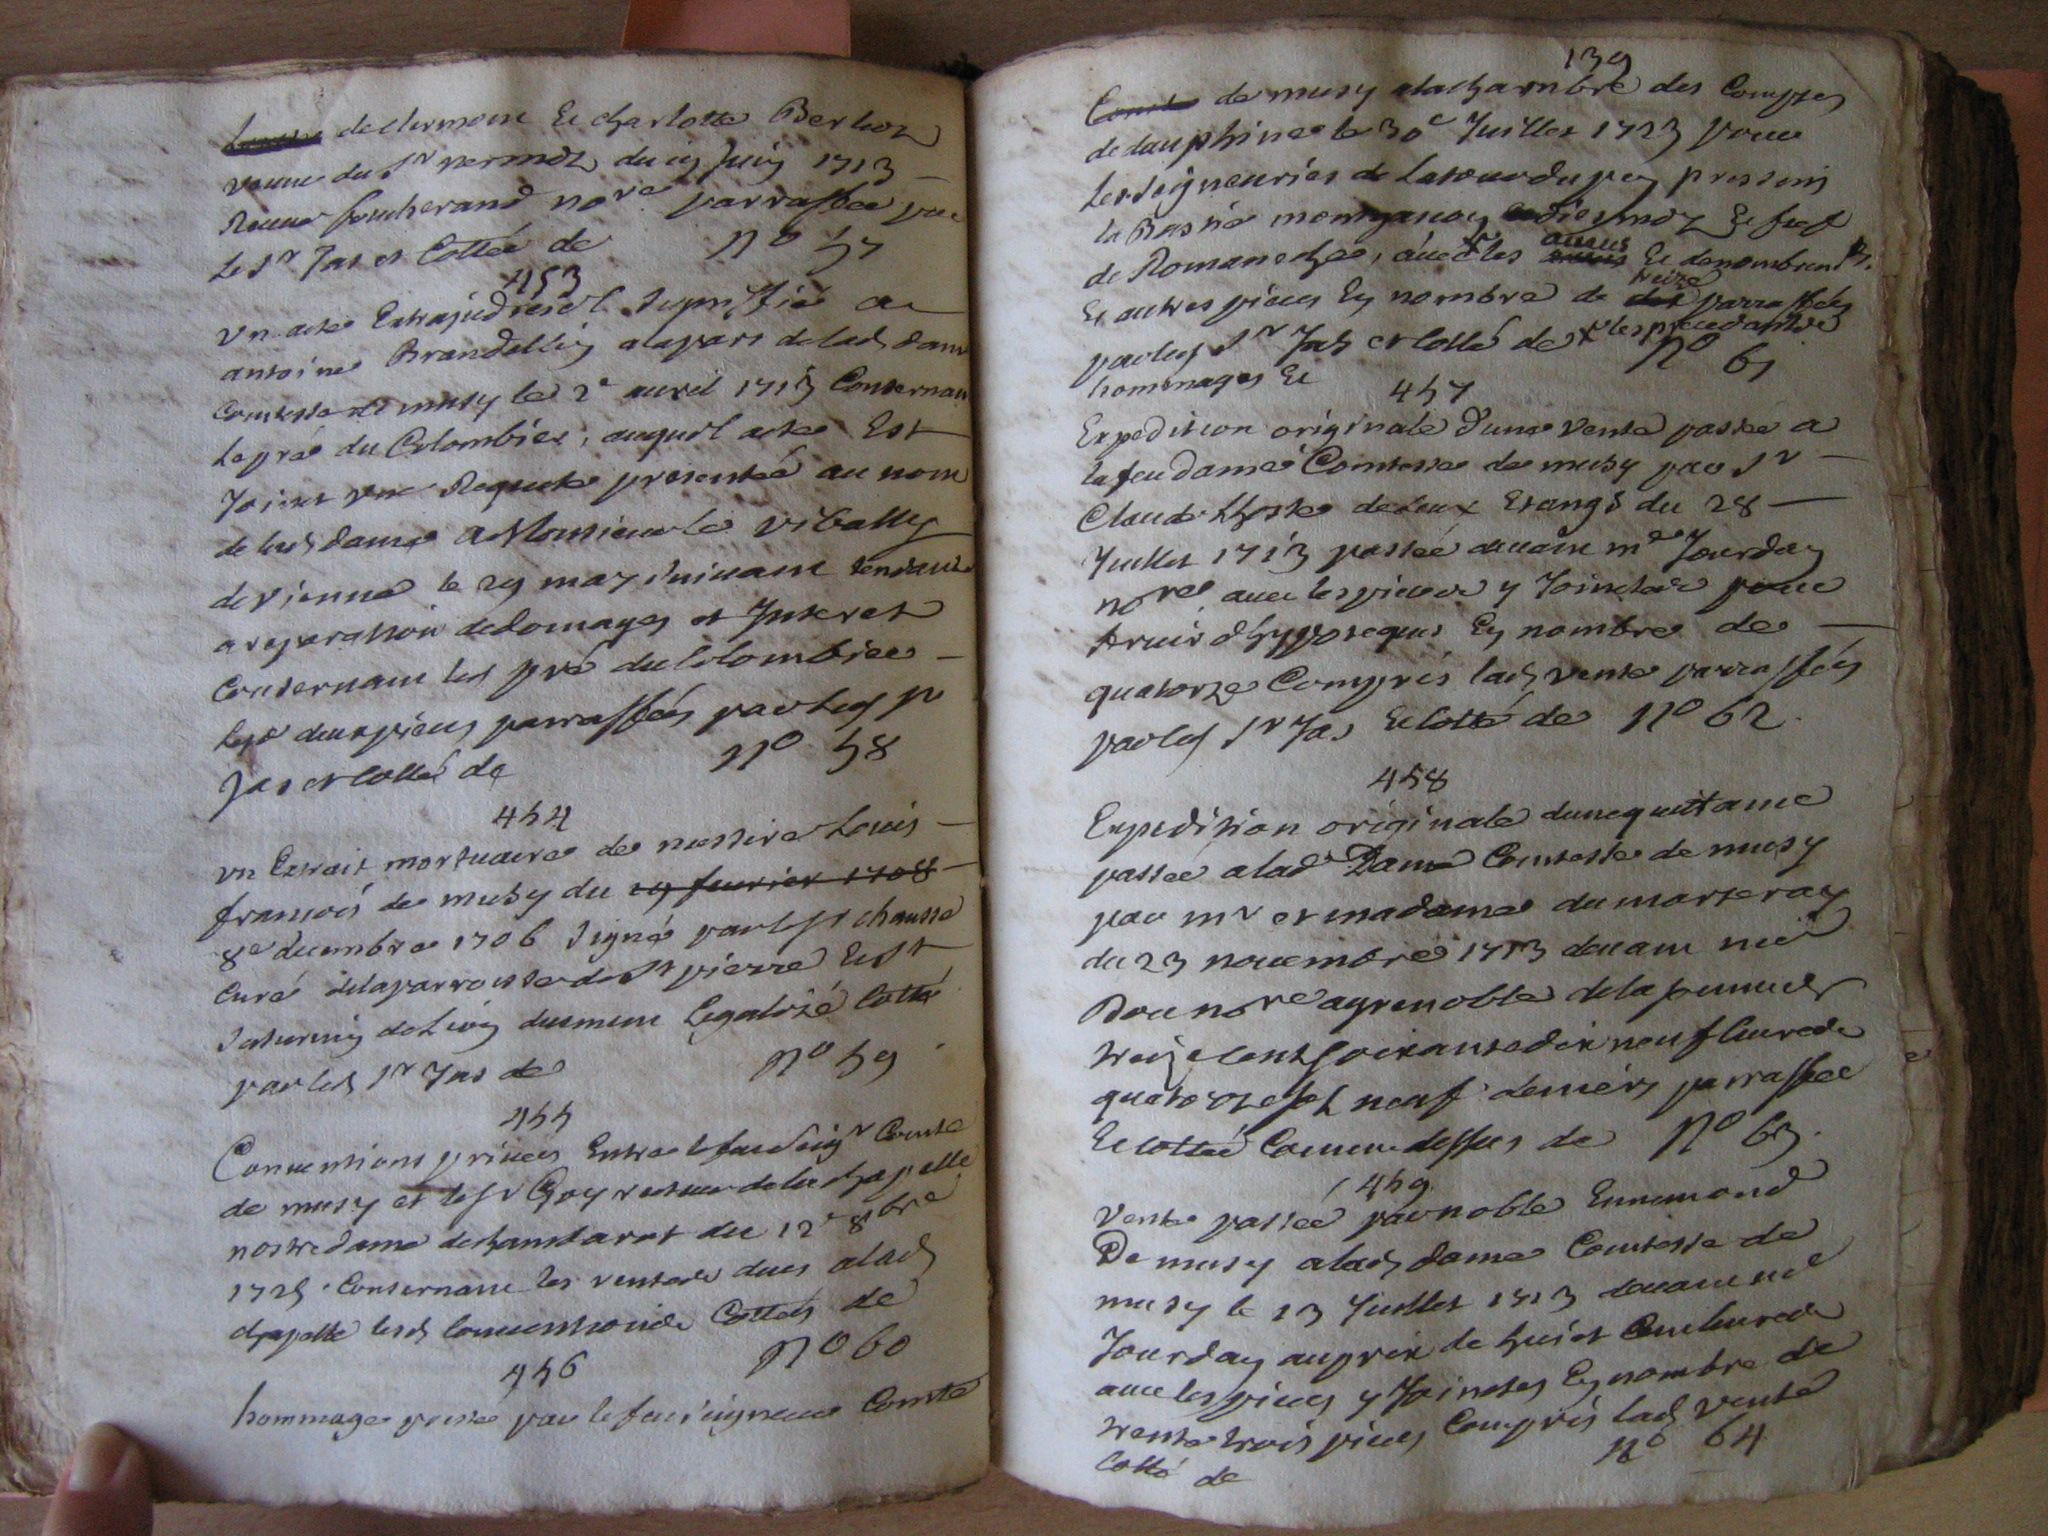 de clermont Et charlotte Berlioz
veuve du Sr vermoz du 19 Juin 1713
Receu foucherand nore parraffée par
le Sr Jas et Cottée de No 57
453
Un acte Extrajudiciel Signiffié a
antoine Brandellin a la part de lad dame
Comtesse de musy le 2e avril 1713 Consernan
le pré du Colombier, auquel acte Est
Joint une Requete presentée au nom
de lad dame a Monsieur le vibally
de vienne le 29 may suivant tendante
a reparation de domages et Interet
Consernant led pré du Colombier
les deux pieces parraffées par led Sr
Jas et Cotté de No 58
454
un Extrait mortuaire de messire Louis
francois de musy du 19 fevrier 1708
8e decembre 1706 Signé par led Sr chausse
Curé de la parroisse de St pierre Est
Saturnin de Lion duement Legalizé Cotté
par led Sr Jas de No 59
455
Conventions privées Entre le feu Seigr Comte
de musy et led Sr Goy recteur de la chapelle
nostre dame de du 12e 8bre
1725 Consernant les rentes dues a lad
chapelle lesd Conventions Cottés de
No 60
456
hommage prette par le feu seigneur Comte
139
Comte de musy a la chambre des Comptes
de dauphiné le 30e Juillet 1723 pour
les seigneuries de Latour du pin pressin
la Bastie mongascon diesmoz Et fief
de Romaneche, avec les aveus Et denombrent
Et autres pieces En nombre de treize parraffées
par led Sr Jas et Cotté de les precedants No 61
hommages Et
457
Expedition originale d'une vente passée a
la feu dame Comtesse de musy par Sr
Claude de deux Etangs du 28
Juillet 1713 passée devant me Jourdan
nore avec les pieces y Jointes pour
servir d'hyppoteques En nombre de
quatorze Compris lad vente parraffées
par led Sr Jas Et Cotté de No 62
458
Expedition originale d'une quittance
passée a lad Dame Comtesse de musy
par mr et madame du marteray
du 23 novembre 1713 devant me
nore a grenoble de la somme de
treize cent soixante dix neuf livres
quatorze sols neuf deniers parraffée
Et cottée Comme dessus de No 63
459
vente passée par noble Ennemond
De musy a lad dame Comtesse de
musy le 13 Juillet 1713 devant me
Jourdan au prix de huit Cent livres
avec les pieces y Jointes En nombre de
trente trois pieces Compris lad vente
Cotté de No 64